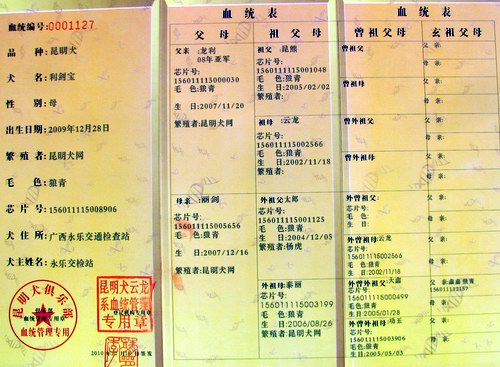 血统编号:0001127
品 种: 昆明犬
犬 名: 利剑宝
性 别: 母
出生日期: 2009年12月28日
繁殖者: 昆明犬网
毛 色: 狼青
芯片号: 156011115008906
犬住所: 广西永乐交通检查站
犬主姓名: 永乐交检站
昆明犬俱乐部
血统管理专用
昆明犬云龙
系血统管理
专用章
血统表
父母
祖父母
曾祖父母
玄祖父母
父亲 :龙利
08年亚军
芯片号:
156011115000030
毛 色:狼青
生 日:2007/11/20
繁殖者:昆明犬网
母亲 :丽剑
芯片号:
156011115005656
毛 色:狼青
生 日:2007/12/16
繁殖者:昆明犬网
祖父 :昆熊
芯片号:
156011115001048
毛 色:狼青
生 日:2005/02/02
繁殖者:
祖母 :云龙
芯片号:
156011115002566
毛 色:狼青
生 日:2002/11/18
繁殖者:
外祖父太郎
芯片号:
156011115001125
毛 色:狼青
生 日:2004/12/05
繁殖者:杨虎
外祖母:泰丽
芯片号:
156011115003199
毛 色:狼青
生 日:2006/08/26
繁殖者:昆明犬网
曾祖父:
芯片号:
毛 色:
生 日:
曾祖母
芯片号:
毛 色:
生 日:
曾外祖父
芯片号:
毛 色:
生 日:
曾外祖母
芯片号:
毛 色:
生 日:
外曾祖父:
芯片号:
毛 色:
生 日:
外曾祖母云龙
芯片号:
156011115002566
毛 色:狼青
生 日:2002/11/18
芯片号:
156011115000499
毛 色:狼青
生 日:2005/01/28
外曾外祖母:琦玉
芯片号:
156011115003906
毛 色:狼青
生 日:2005/05/03
父亲:
母亲:
父亲:
母亲:
父亲:
母亲:
父亲:
母亲:
父亲:
母亲:
父亲:
母亲:
母亲:
父亲:
母亲: